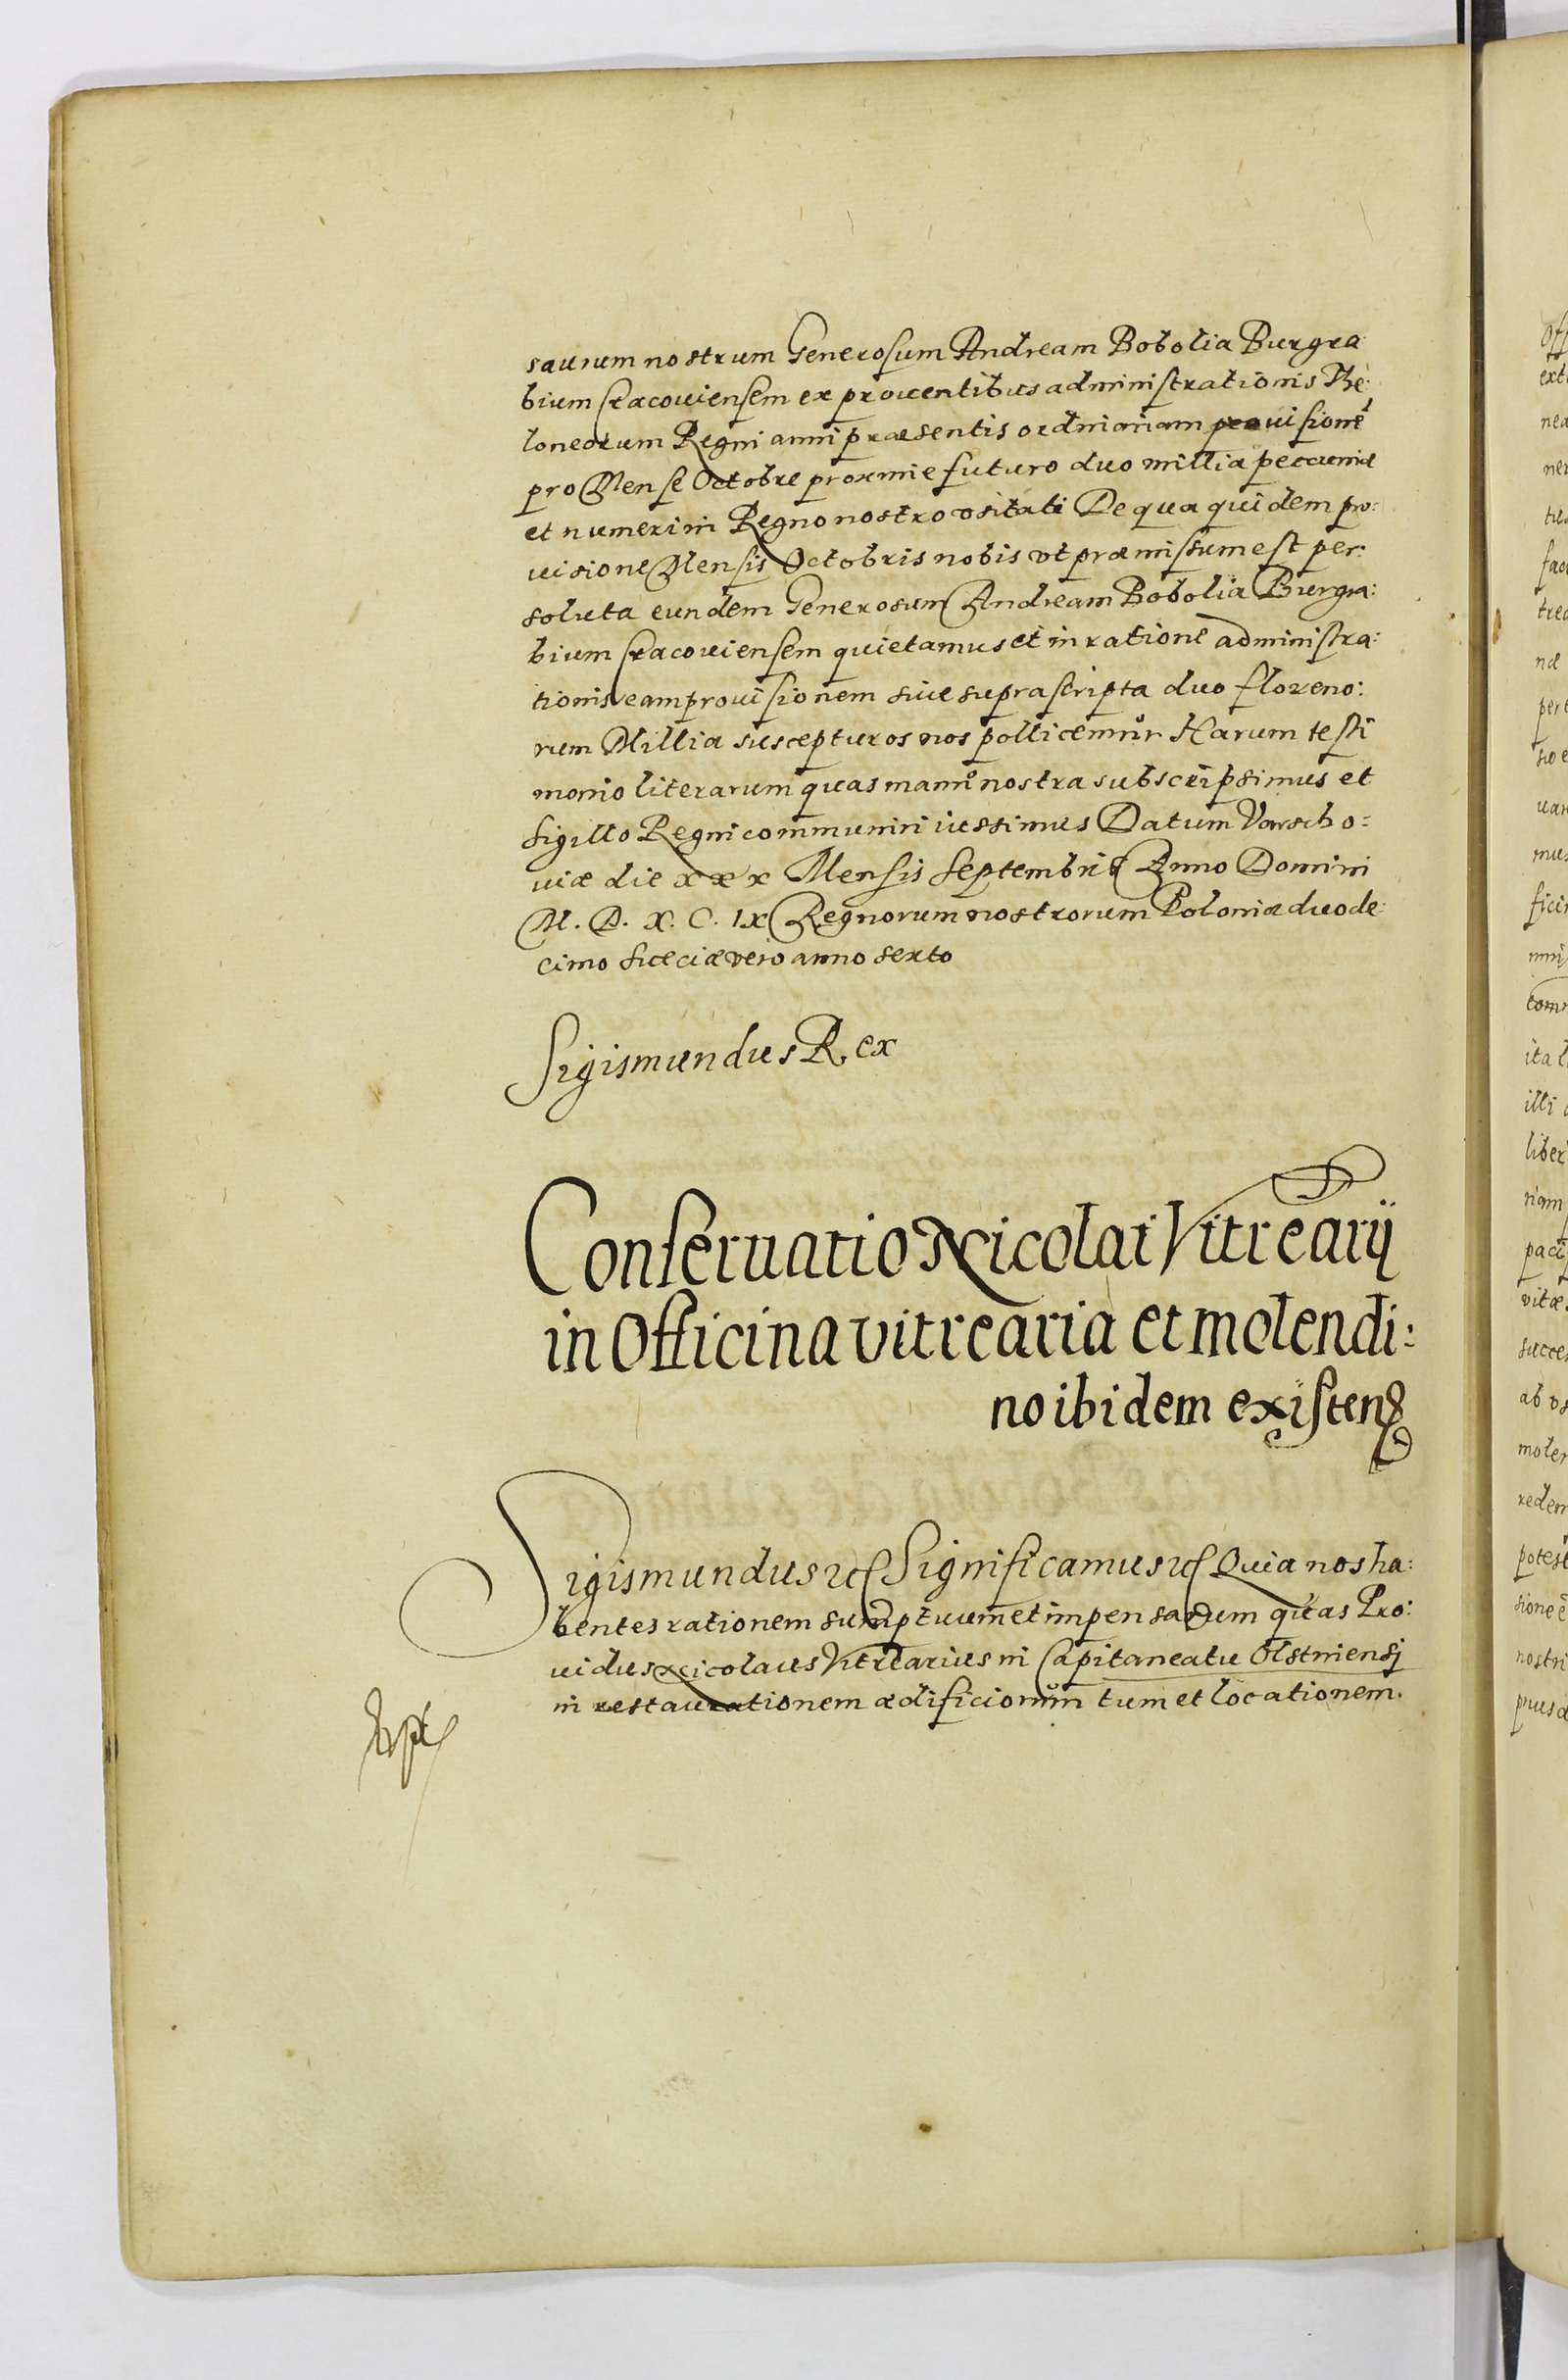 saurum nostrum Generosum Andream Bobolia Burgra
bium Cracouiensem ex prouentibus administrationis The:
loneorum Regni anni præsentis ordinariam prouisione
pro Mense Octobre proxmie futuro duo millia pecuniæ
et numeri in Regno nostro vsitati De qua quidem pro:
uisione Mensis Octobris nobis vt præmissum est per:
soluta eundem Generosum Andream Bobolia Burgra:
bium Cracouiensem quietamus et in ratione administra:
tionis eam prouisionem siue supra scripta duo floreno:
rum Millia suscepturos nos pollicemur Harum testi
monio literarum quas manu nostra subscripsimus et
sigillo Regni communiri iussimus Datum Varscho=
uiæ die xxx Mensis Septembris Anno Domini
M. D. X. C. IX Regnorum nostrorum Poloniæ duode:
cimo Sueciæ vero anno sexto
Sigismundus Rex
Conseruatio Nicolai Vitrearij
in Officina vitrearia et molendi:
no ibidem existen
Sigismundus Significamus Quia nos ha:
bentes rationem sumptuum et impensarum quas Pro:
uidus Nicolaus Vitrearius in Capitaneatu Olstinensi
in restaurationem ædificiorum tum et locationem.